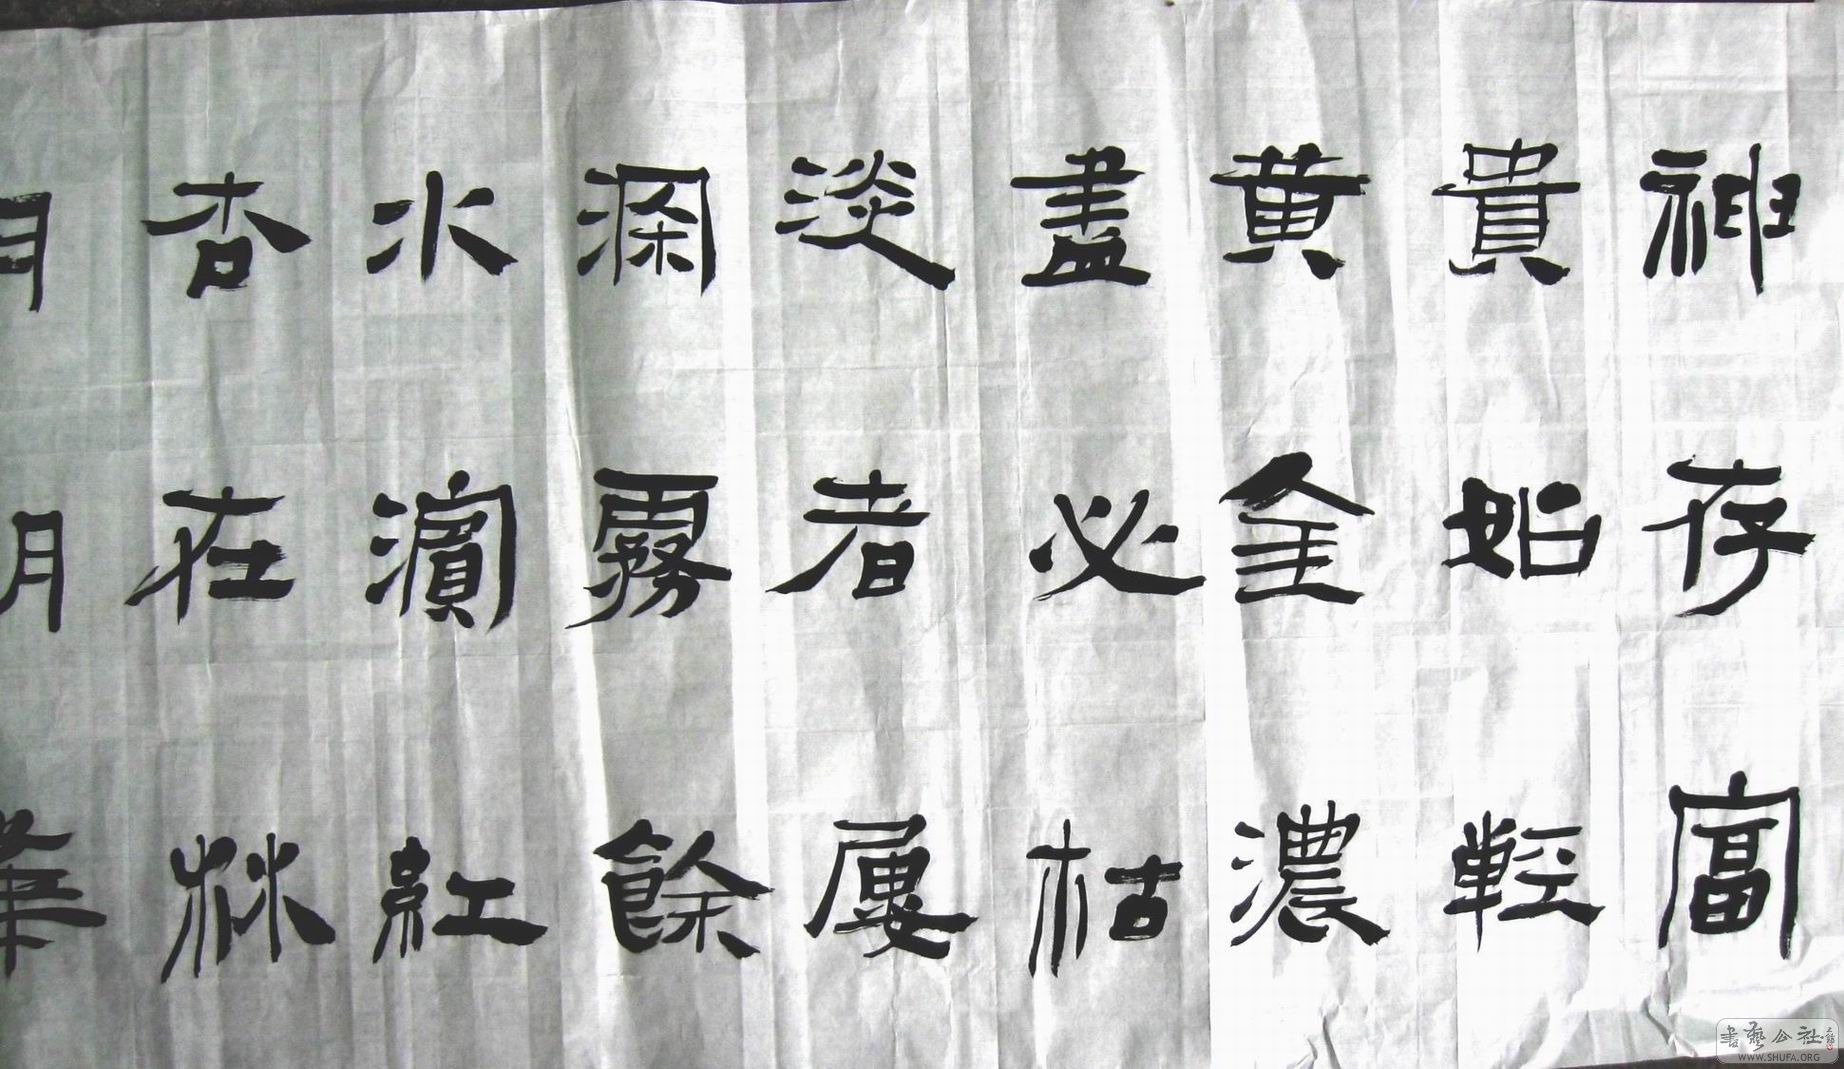 神存富
貴始輕
黄金濃
盡必枯
淡者屢
深霧餘
水濱紅
杏在林
月明華
書藝公社
WWW.SHUFA.ORG